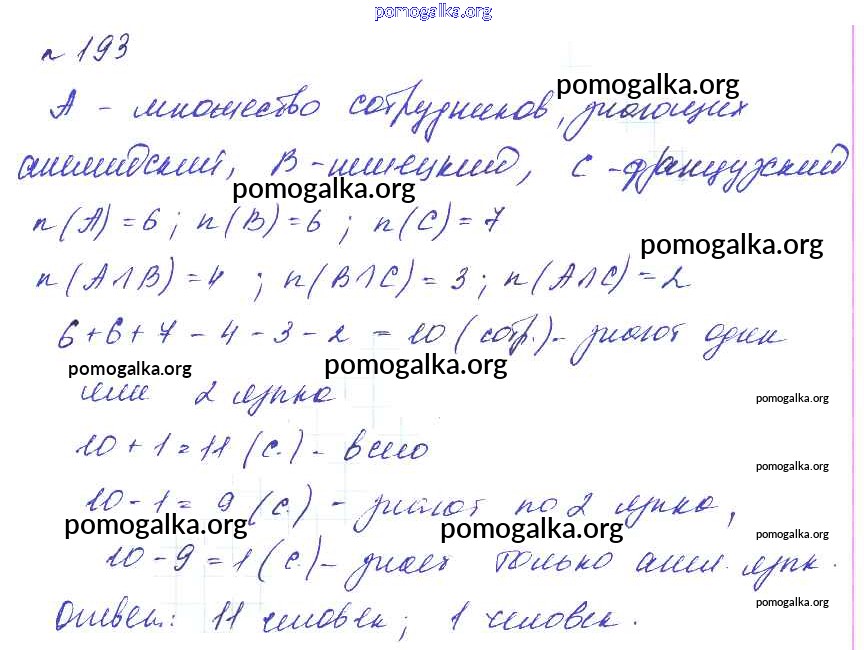 pomogalka.org
n 193
pomogalka.org
A - множество сотрудников, знающих
английский, B - немецкий, C - французский
pomogalka.org
n(A) = 6; n(B) = 6; n(C) = 7
pomogalka.org
n(A∩B) = 4; n(B∩C) = 3; n(A∩C) = 2
6+6+7-4-3-2 = 10 (сотр.) - знают один
pomogalka.org
pomogalka.org
или 2 языка
pomogalka.org
10+1=11 (с.) - всего
pomogalka.org
10-1= 9 (с.) - знают по 2 языка,
pomogalka.org
pomogalka.org
pomogalka.org
10-9=1 (с.) - знает только англ. язык.
pomogalka.org
Ответ: 11 человек; 1 человек.